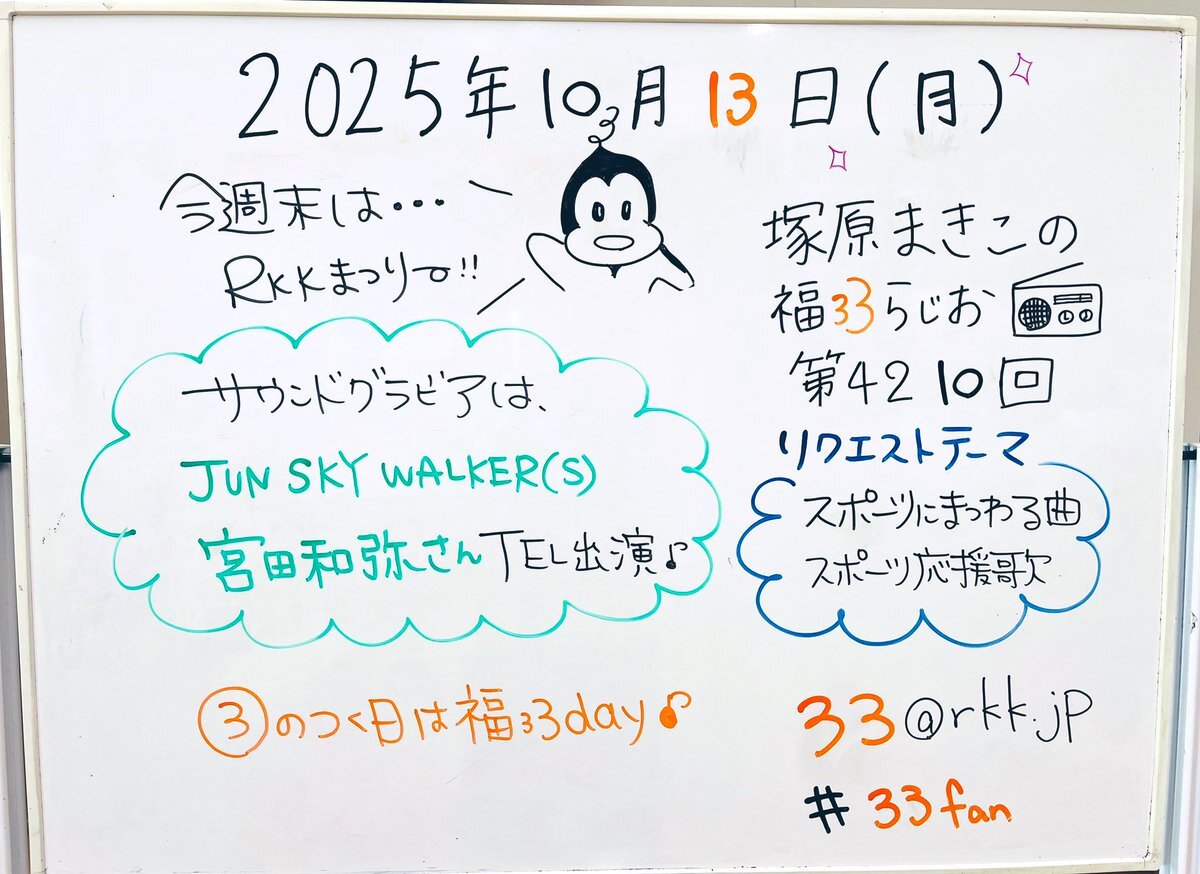 2025年10月13日(月)
今週末は・・・
RKKまつりでー!!
サウンドグラビアは、
JUN SKY WALKER(S)
宮田和弥さんTEL出演♪
③のつく日は福33day♪
塚原まきこの
福33らじお
第4210回
リクエストテーマ
スポーツにまつわる曲
スポーツ応援歌
33@rkk.jp
#33fan